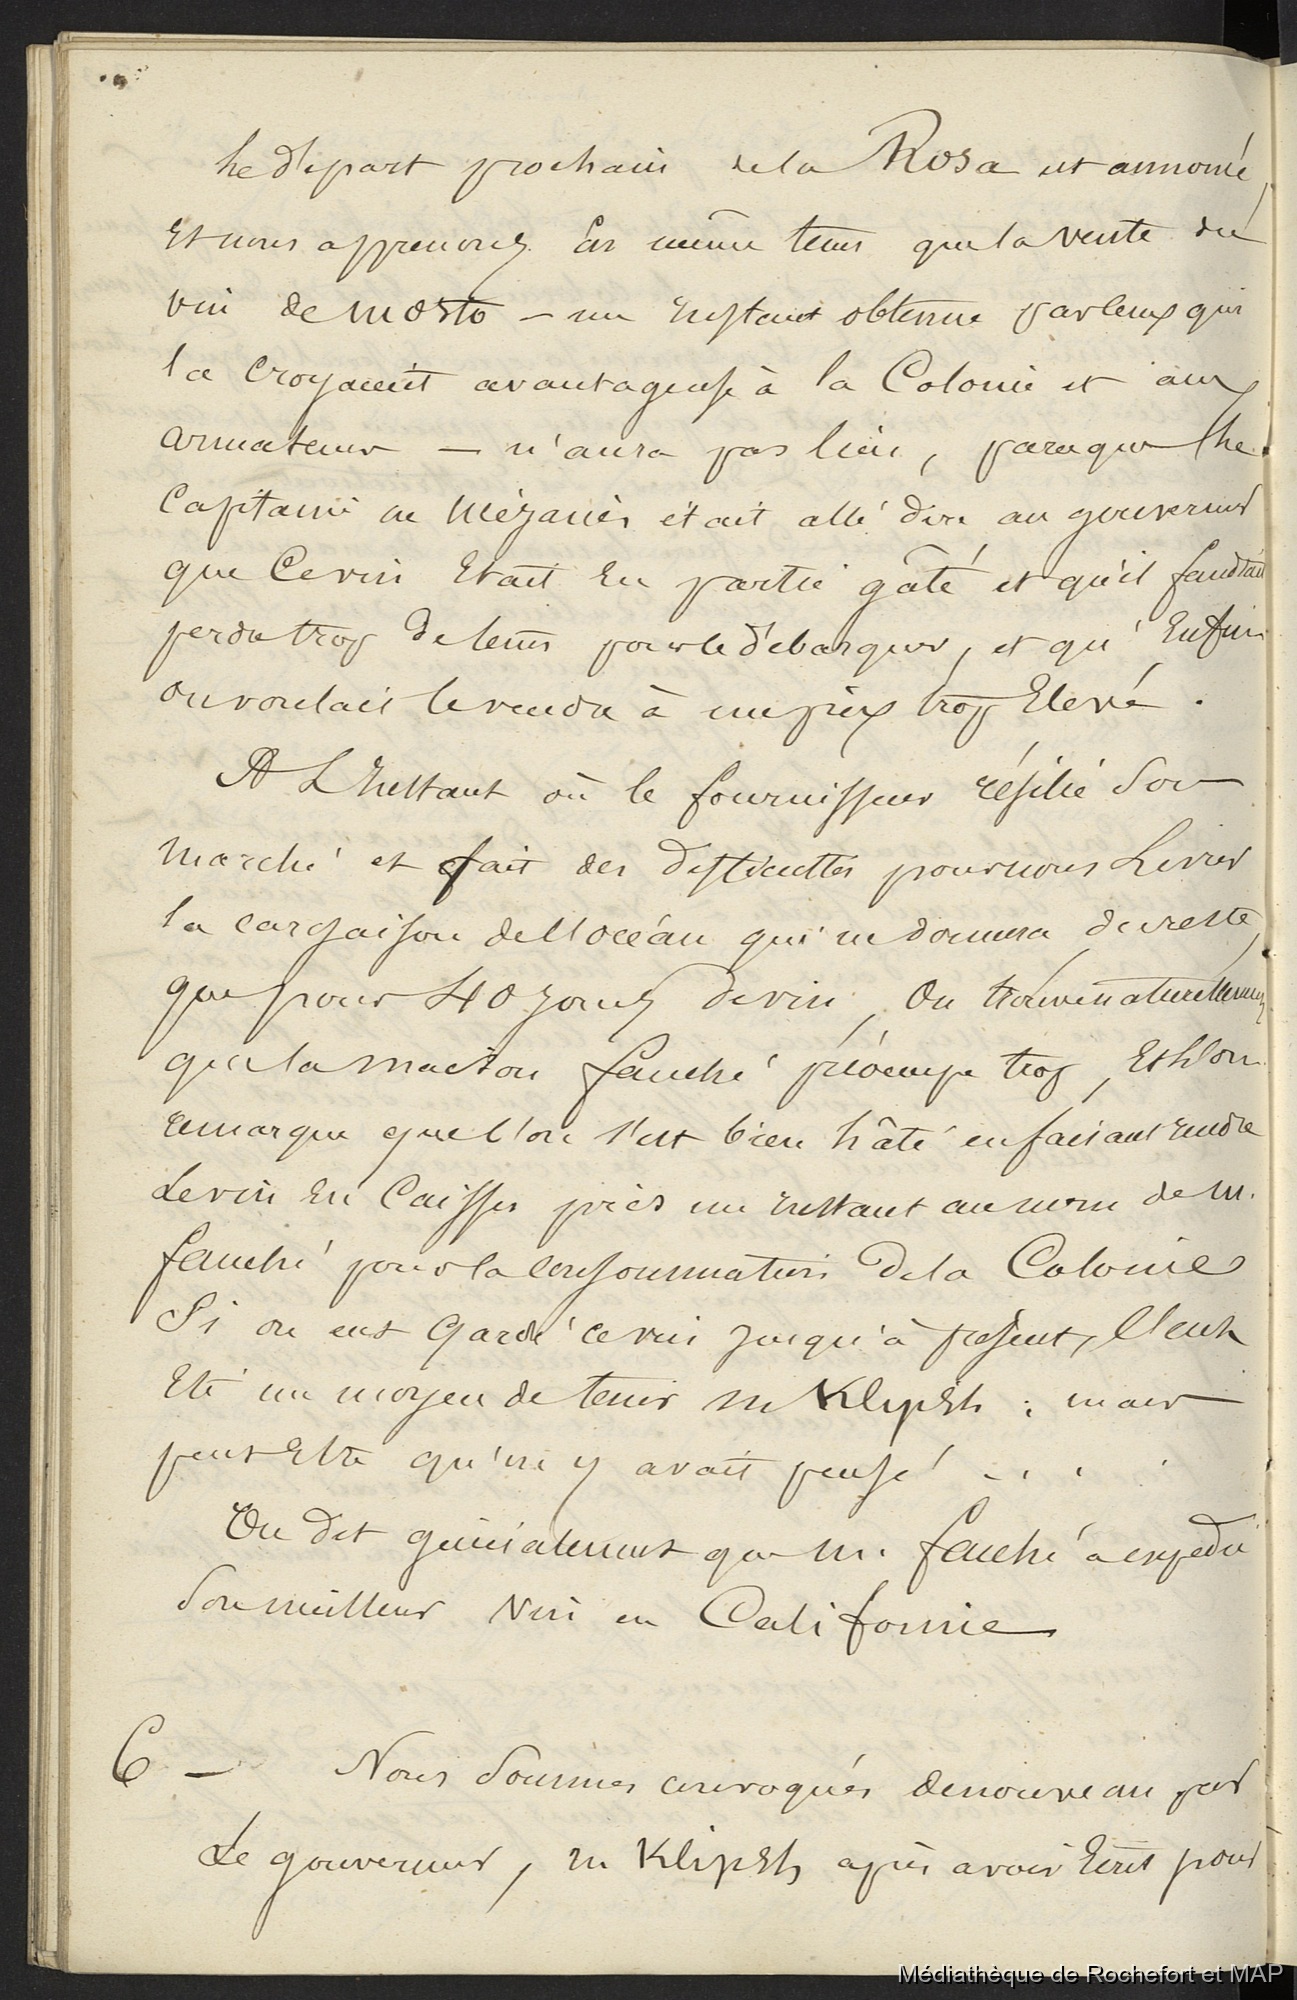 Le départ prochain de la Rosa est annoncé,
Et nous apprenons En même tems que la vente du
vin de Mosto — un Instant obtenue par ceux qui
la croyaient avantageuse à la Colonie et aux
armateurs — n'aura pas lieu, parceque Le
Capitaine au était allé dire au gouverneur
que Ce vin Etait En partie gâté et qu'il faudrait
perdre trop de tems pour le débarquer, et qu'Enfin
on voulait le vendre à un prix trop Elevé.
A L'Instant où le fournisseur résilie Son
marché et fait des difficultés pour nous Livrer
la cargaison de l'océan qui ne donnera du reste,
que pour 40 jours de vin, On trouve naturellement
que la maison fauché préoccupe trop, Et L'on
remarque que l'on s'est bien hâté en faisant vendre
Le vin En Caisses pris un Instant au nom de M.
fauché pour la consommation De la Colonie
Si on eut Gardé ce vin jusqu'à présent, C'eut
Eté un moyen de tenir M Klipsh ; mais
peut Etre qu'on y avait pensé . . . .
On dit généralement que M. fauché a expédié
Son meilleur Vin en Californie
6 — Nous Sommes convoqués de nouveau par
Le gouverneur, M Klipsh après avoir Ecrit pour
Médiathèque de Rochefort et MAP